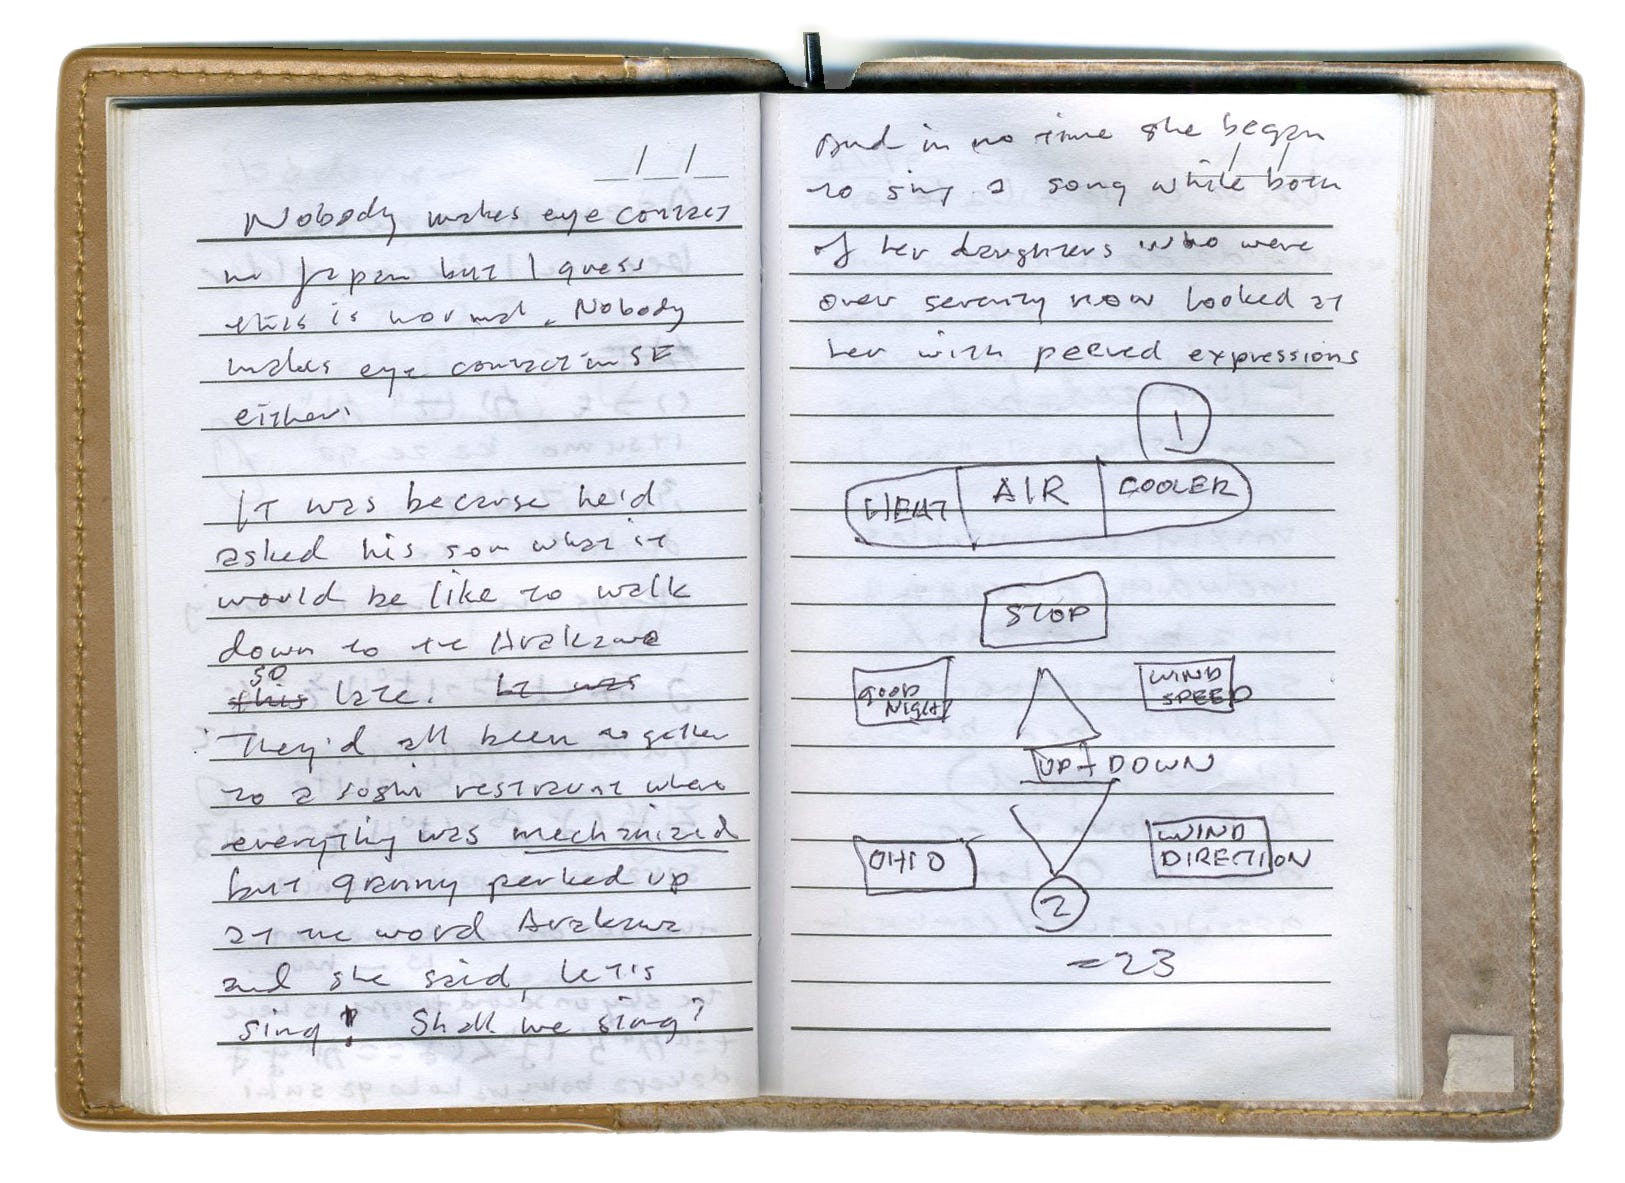 _/_/_
Nobody makes eye contact
in Japan but I guess
this is normal. Nobody
makes eye contact in SF
either.
It was because he'd
asked his son what it
would be like to walk
down to the Arakawa
so
this late. It was
They'd all been together
to a soshi restraunt where
everything was mechanized
but granny perked up
at the word Arakawa
and she said, let's
sing! Shall we sing?
And in no time she began
to sing a song while both
of her daughters who were
over seventy now looked at
her with peeved expressions
1
HEAT AIR COOLER
STOP
GOOD NIGHT
WIND SPEED
UP + DOWN
OHIO
WIND DIRECTION
2
=23